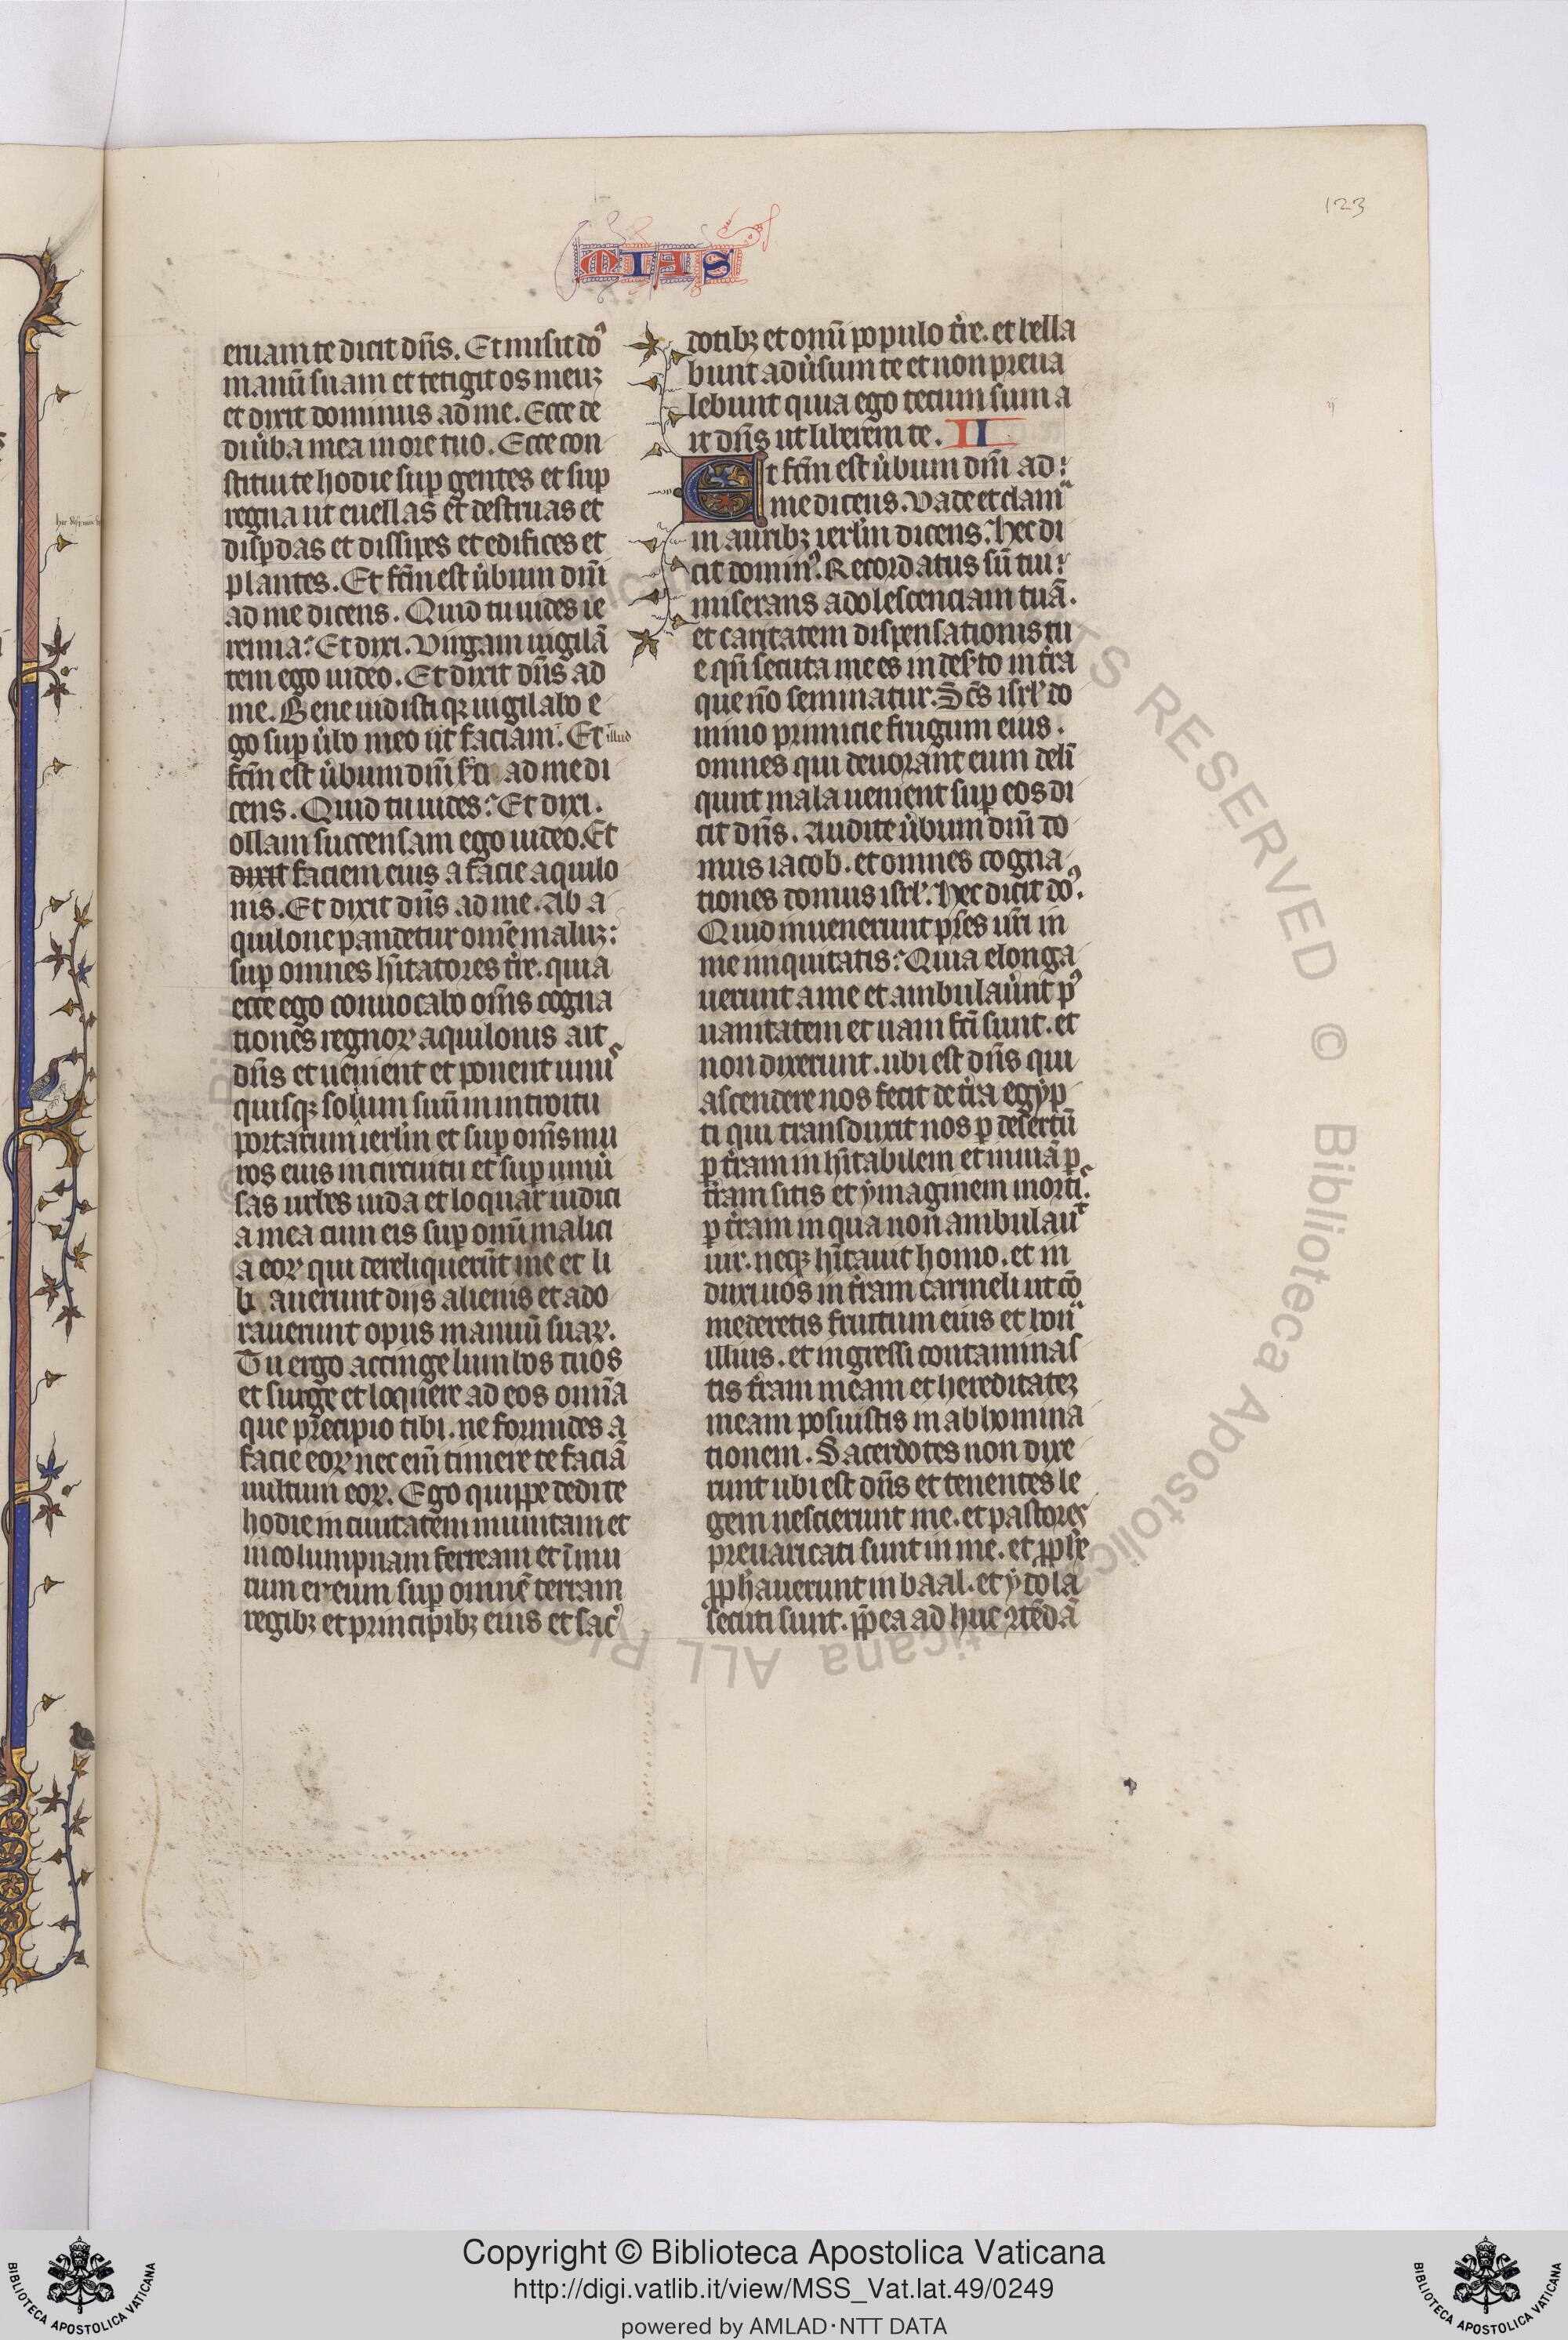 123
MIAS
eruam te dicit dn̄s. Et misit doꝰ
manū suam et tetigit os meuꝫ
et dixit dominus ad me. Ecce de
di u͛ba mea in ore tuo. Ecce con
stitui te hodie suꝑ gentes et suꝑ
regna ut euellas et destruas et
disꝑdas et dissipes et edifices et
plantes. Et fc̄m est u͛bum dn̄i
ad me dicens. Quid tu uides ie
remia? Et dixi. Virgam uigilā
tem ego uideo. Et dixit dn̄s ad
me. Bene uidisti qꝫ uigilabo e
go suꝑ u͛bo meo ut faciam. Et illud
fc̄m est u͛bum dn̄i ad me di
cens. Quid tu uides? Et dixi.
ollam succensam ego uideo. Et
dixit faciem eius a facie aquilo
nis. Et dixit dn̄s ad me. Ab a
quilone pandetur om̄e maluꝫ:
suꝑ omnes hītatores t͛re. quia
ecce ego conuocabo om̄s cogna
tiones regnoꝝ aquilonis ait
dn̄s et uenient et ponent unuˢ
quisqꝫ solium suū in introitu
portarum ierlm̄ et suꝑ om̄s mu
ros eius in circuitu et suꝑ uniu͛
sas urbes iuda et loquar iudici
a mea cum eis suꝑ omnē malici
a eoꝝ qui dereliquerūt me et li
b auerunt diis alienis et ado
rauerunt opus manuū suaꝝ.
Tu ergo accinge lumbos tuos
et surge et loquere ad eos omīa
que p̄cipio tibi. ne formides a
facie eoꝝ nec em̄ timere te faciā
uultum eoꝝ. Ego quippe dedi te
hodie in ciuitatem munitam et
in columpnam ferream et ī mu
rum ereum suꝑ omnē terram
regibꝫ et principibꝫ eius et sac͛
dotibꝫ et omī populo t͛re. et bella
bunt adu͛sum te et non preua
lebunt quia ego tecum sum a
it dn̄s ut liberem te. II
Et fc̄m est u͛bum dn̄i ad
me dicens. Vade et clamᵃ
in auribꝫ ierlm̄ dicens. Hec di
cit dominꝰ. Recordatus sū tui
miserans adolescenciam tuā.
et caritatem dispensationis tu
e qn̄ secuta me es in des͛to in t͛ra
que nō seminatur. Sc̄s isrl̓ do
mino primicie frugum eius.
omnes qui deuorant eum delī
qunt mala uenient suꝑ eos di
cit dn̄s. Audite u͛bum dn̄i do
mus iacob. et omnes cogna
tiones domus isrl̓. Hec dicit doꝰ.
Quid inuenerunt p̄res ur̄i in
me iniquitatis? Quia elonga
uerunt a me et ambulau͛nt pꝰ
uanitatem et uani fc̄i sunt. et
non dixerunt. ubi est dn̄s qui
ascendere nos fecit de t͛ra egyp
ti qui transduxit nos ꝑ desertū
ꝑ t͛ram inhītabilem et inuiā ꝑ
t͛ram sitis et ymaginem mortiˢ.
ꝑ t͛ram in qua non ambulauᵗ
uir. neqꝫ hītauit homo. et in
duxi uos in t͛ram carmeli ut cō
mederetis fructum eius et bonᵃ
illius. et ingressi contaminas
tis t͛ram meam et hereditateꝫ
meam posuistis in abhomina
tionem. Sacerdotes non dixe
runt ubi est dn̄s et tenentes le
gem nescierunt me. et pastores
preuaricati sunt in me. et ꝓph̄e
ꝓph̄auerunt in baal. et ydola
secuti sunt. ꝓpea ad huc ꝯtēdā
© Biblioteca Apostolica Vaticana ALL RIGHTS RESERVED
Copyright © Biblioteca Apostolica Vaticana
http://digi.vatlib.it/view/MSS_Vat.lat.49/0249
powered by AMLAD·NTT DATA
BIBLIOTECA APOSTOLICA VATICANA
BIBLIOTECA APOSTOLICA VATICANA